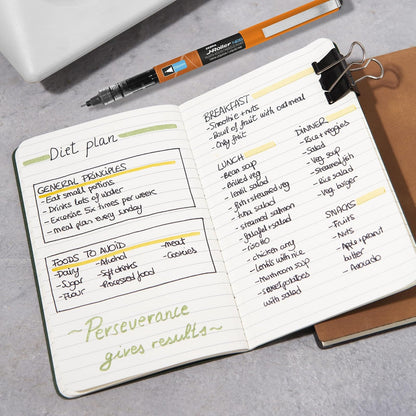 Diet plan
GENERAL PRINCIPLES
- Eat small portions
- Drinks lots of water
- Excersise Six times per week
- meal plan every sunday
FOODS TO AVOID
- Dairy
- Sugar
- Flour
- Alcohol
- Soft drinks
- Processed food
- Meat
- Cookies
~Perseverance
gives results~
BREAKFAST
- Smoothie + nuts
- Bowl of fruit with oatmeal
- Only fruit
LUNCH
- Bean soup
- Baked veg
- lentil salad
- fish + steamed veg
- tuna salad
- steamed salmon
- falafel + salad
- risotto
- chicken curry
- Lentils with rice
- mushroom soup
- sweet potatoes
with salad
DINNER
- Rice + veggies
- Salad
- Veg soup
- Steamed fish
- Rice salad
- Veg burger
SNACKS
- Fruits
- Nuts
- Apple + peanut
butter
- Avocado
J-Roller